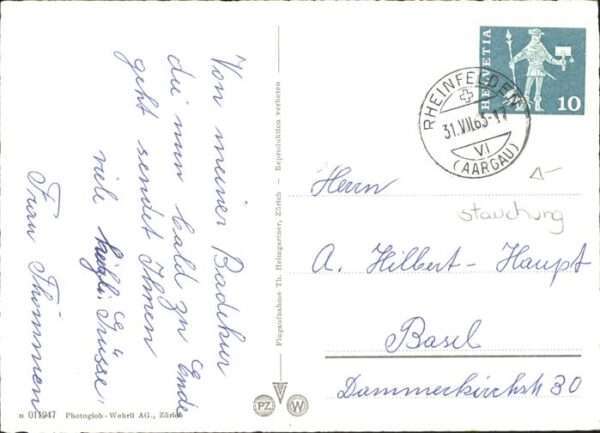 Von meiner Badekur
die nun bald zu Ende
geht sendet Ihnen
viele herzli. Grüsse,
Frau Thommen
n 011947 Photoglob-Wehrli AG., Zürich
Flugaufnahme Th. Heimgartner, Zürich – Reproduktion verboten
PZ W
HELVETIA
10
RHEINFELDEN
31.VII.63-17
VI
(AARGAU)
Herrn
Stauchung
A. Hilbert-Haupt
Basel
Dammerkirchstr 30